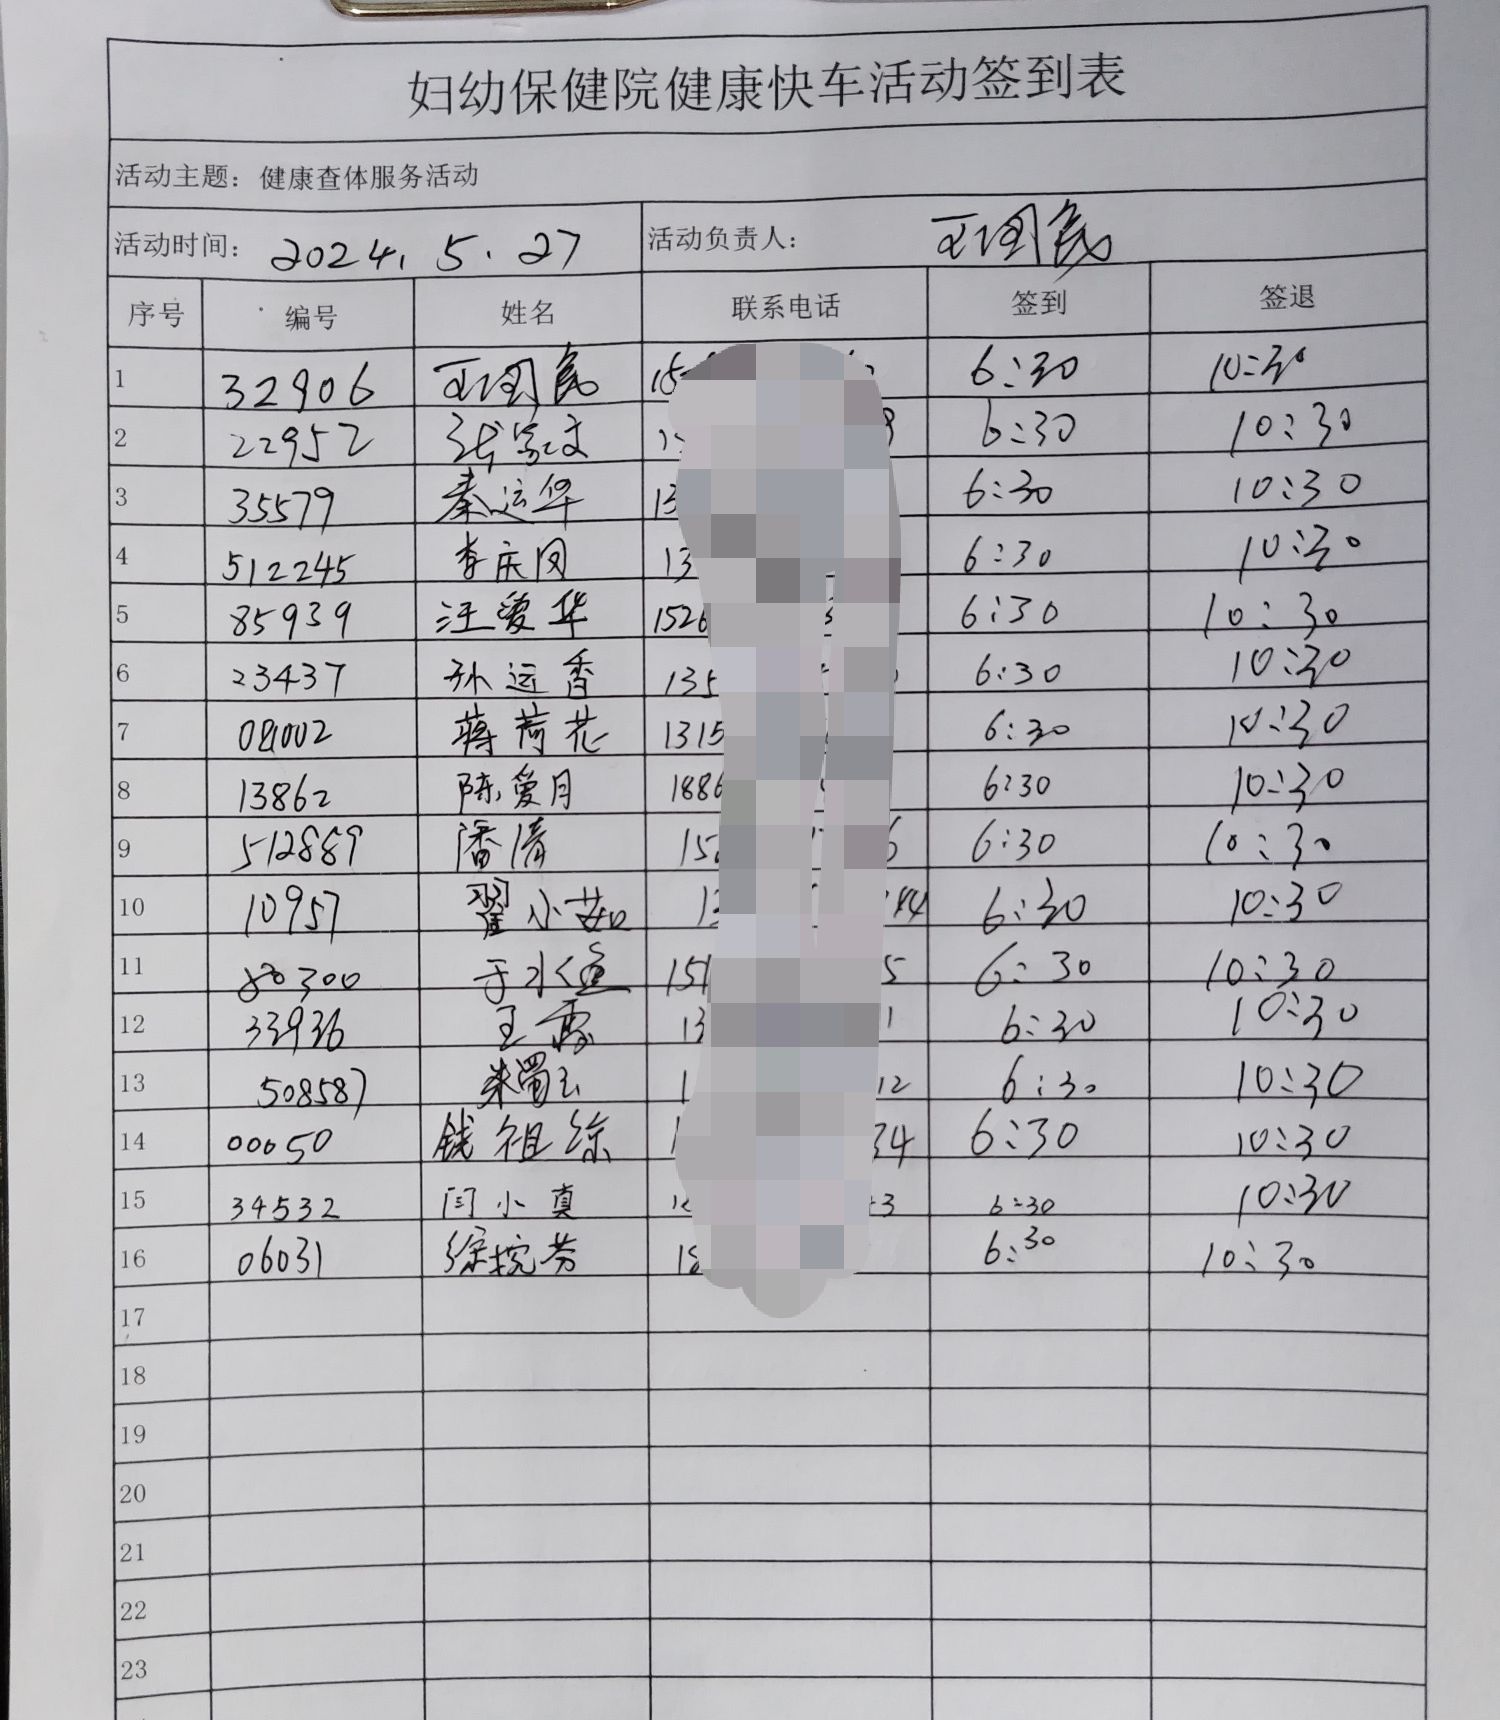 妇幼保健院健康快车活动签到表
活动主题：健康查体服务活动
活动时间：2024.5.27 活动负责人：王国民
序号 编号 姓名 联系电话 签到 签退
1 32906 王国民 15 6:30 10:30
2 22952 张宗文 6:30 10:30
3 35579 秦运华 13 6:30 10:30
4 512245 李庆凤 13 6:30 10:30
5 85939 汪爱华 1526 6:30 10:30
6 23437 孙远香 135 6:30 10:30
7 蒋荷花 1315 6:30 10:30
8 13862 陈爱月 1886 6:30 10:30
9 512889 潘倩 15 6 6:30 10:30
10 10957 翟小茹 1 44 6:30 10:30
11 80300 于水 151 5 6:30 10:30
12 33936 王霞 13 1 6:30 10:30
13 508587 朱蜀玉 1 12 6:30 10:30
14 00050 钱祖综 1 34 6:30 10:30
15 34532 闫小真 3 6:30 10:30
16 06031 徐婉芳 18 6:30 10:30
17
18
19
20
21
22
23